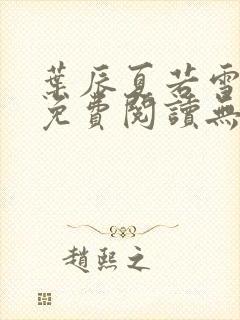 葉辰夏若雪
免費閱讀無
趙熙之